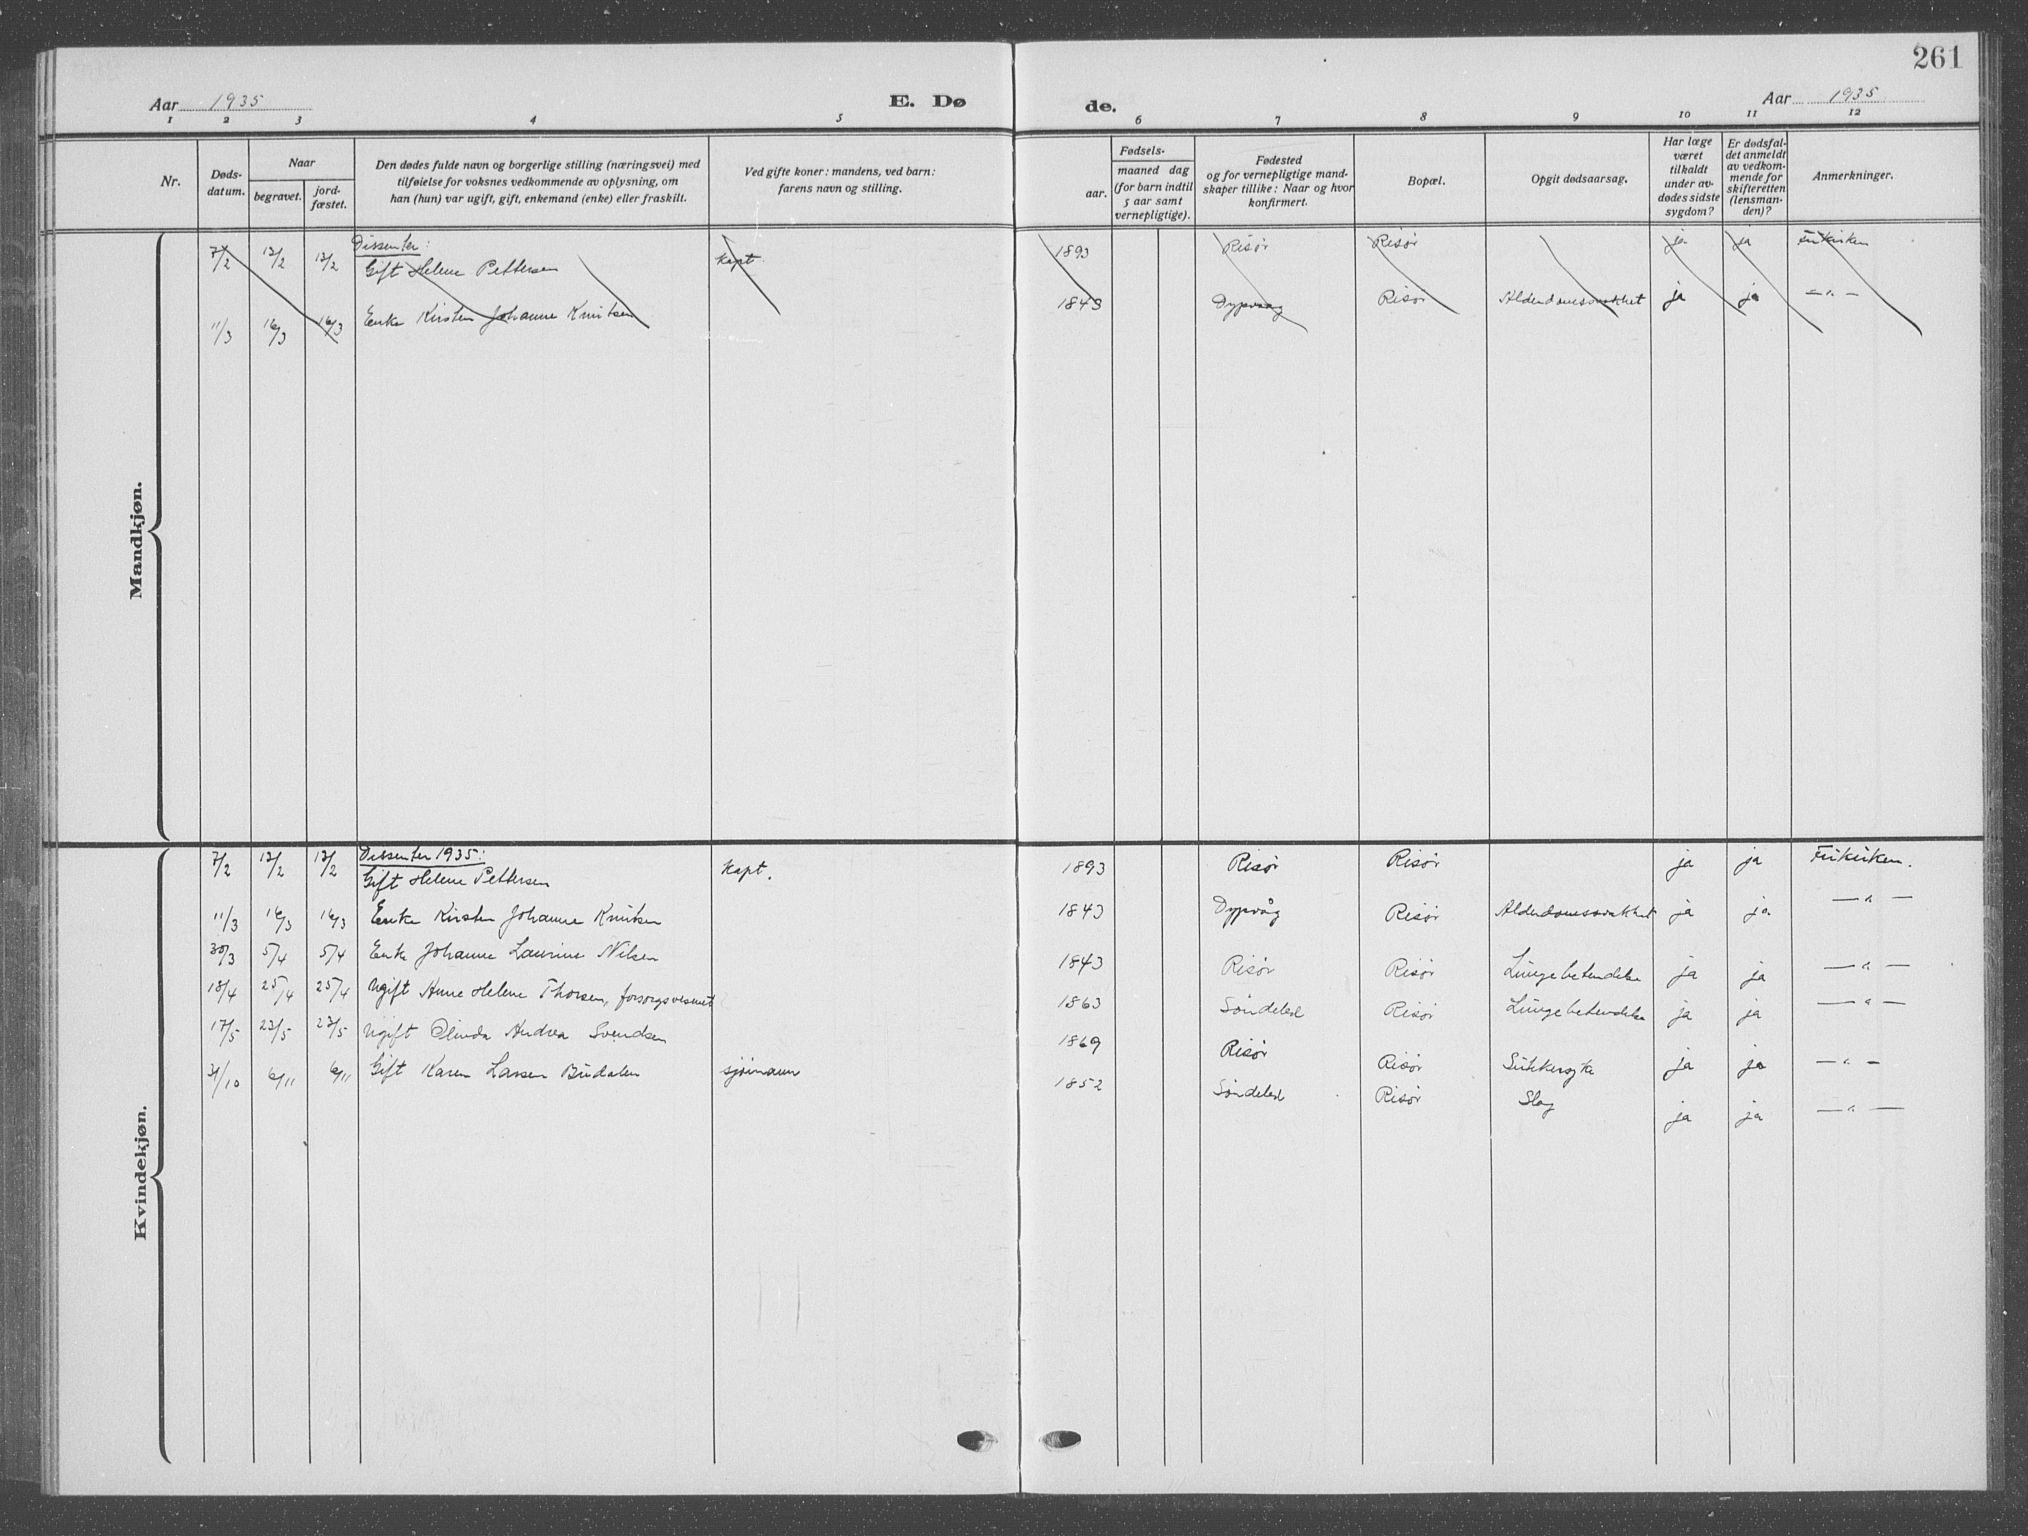 261
Aar 1935
E. Dø
de.
Aar 1935
1 2 3 4 5 6 7 8 9 10 11 12
Nr.
Døds-
datum.
Naar
begravet.
jord-
fæstet.
Den dødes fulde navn og borgerlige stilling (næringsvei) med
tilføielse for voksnes vedkommende av oplysning, om
han (hun) var ugift, gift, enkemand (enke) eller fraskilt.
Ved gifte koner: mandens, ved barn:
farens navn og stilling.
Fødsels-
aar.
maaned dag
(for barn indtil
5 aar samt
vernepligtige).
Fødested
og for vernepligtige mand-
skaper tillike: Naar og hvor
konfirmert.
Bopæl.
Opgit dødsaarsag.
Har læge
været
tilkaldt
under av-
dødes sidste
sygdom?
Er dødsfal-
det anmeldt
av vedkom-
mende for
skifteretten
(lensman-
den)?
Anmerkninger.
Mandkjøn.
Dissenter:
7/2 13/2 13/2 Gift Helene Pettersen kapt. 1893 Risør Risør ja ja Frikirken
11/3 16/3 16/3 Enke Kirsten Johanne Knutsen 1843 Dypvaag Risør Alderdomssvakhet ja ja — " —
Kvindekjøn.
Dissenter 1935:
7/2 13/2 13/2 Gift Helene Pettersen kapt. 1893 Risør Risør ja ja Frikirken.
11/3 16/3 16/3 Enke Kirsten Johanne Knutsen 1843 Dypvåg Risør Alderdomssvakhet ja ja — " —
30/3 5/4 5/4 Enke Johanne Laurine Nilsen 1843 Risør Risør Lungebetendelse ja ja — " —
18/4 25/4 25/4 Ugift Anne Helene Thorsen, forsorgsvesenet 1863 Søndeled Risør Lungebetendelse ja ja — " —
17/5 23/5 23/5 Ugift Olinda Andrea Svendsen 1869 Risør Risør Sukkersyke ja ja — " —
31/10 6/11 6/11 Gift Karen Larsen Budalen sjømann 1852 Søndeled Risør Slag ja ja — " —